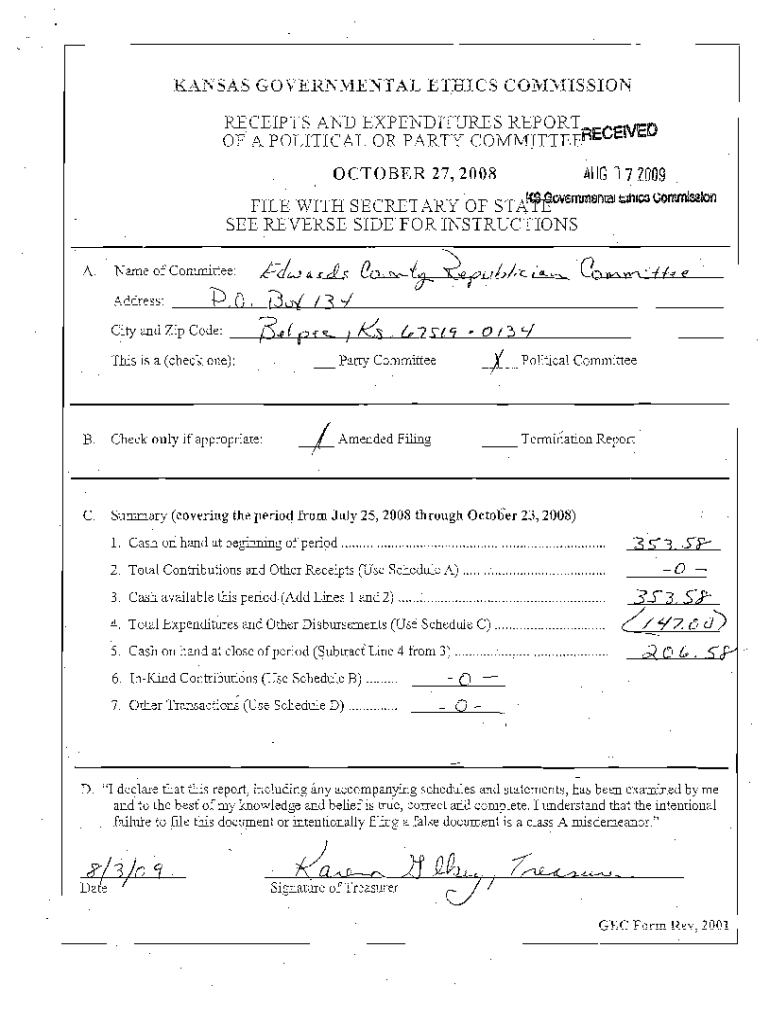 KANSAS GOVERNMENTAL ETHICS COMMISSION
RECEIPTS AND EXPENDITURES REPORT
OF A POLITICAL OR PARTY COMMITTEE
RECEIVED
OCTOBER 27, 2008
AUG 17 2009
FILE WITH SECRETARY OF STATE
KS Governmental Ethics Commission
SEE REVERSE SIDE FOR INSTRUCTIONS
A. Name of Committee: Edwards County Republician Committee
Address: P.O. Box 134
City and Zip Code: Belpre, Ks. 67519-0134
This is a (check one): ___ Party Committee X Political Committee
B. Check only if appropriate: / Amended Filing ___ Termination Report
C. Summary (covering the period from July 25, 2008 through October 23, 2008)
1. Cash on hand at beginning of period ........ 353.58
2. Total Contributions and Other Receipts (Use Schedule A) ........ -0-
3. Cash available this period (Add Lines 1 and 2) ........ 353.58
4. Total Expenditures and Other Disbursements (Use Schedule C) ........ (147.00)
5. Cash on hand at close of period (Subtract Line 4 from 3) ........ 206.58
6. In-Kind Contributions (Use Schedule B) ........ -0-
7. Other Transactions (Use Schedule D) ........ -0-
D. "I declare that this report, including any accompanying schedules and statements, has been examined by me
and to the best of my knowledge and belief is true, correct and complete. I understand that the intentional
failure to file this document or intentionally filing a false document is a class A misdemeanor."
8/3/09 Karen , Treasurer
Date Signature of Treasurer
GEC Form Rev, 2001